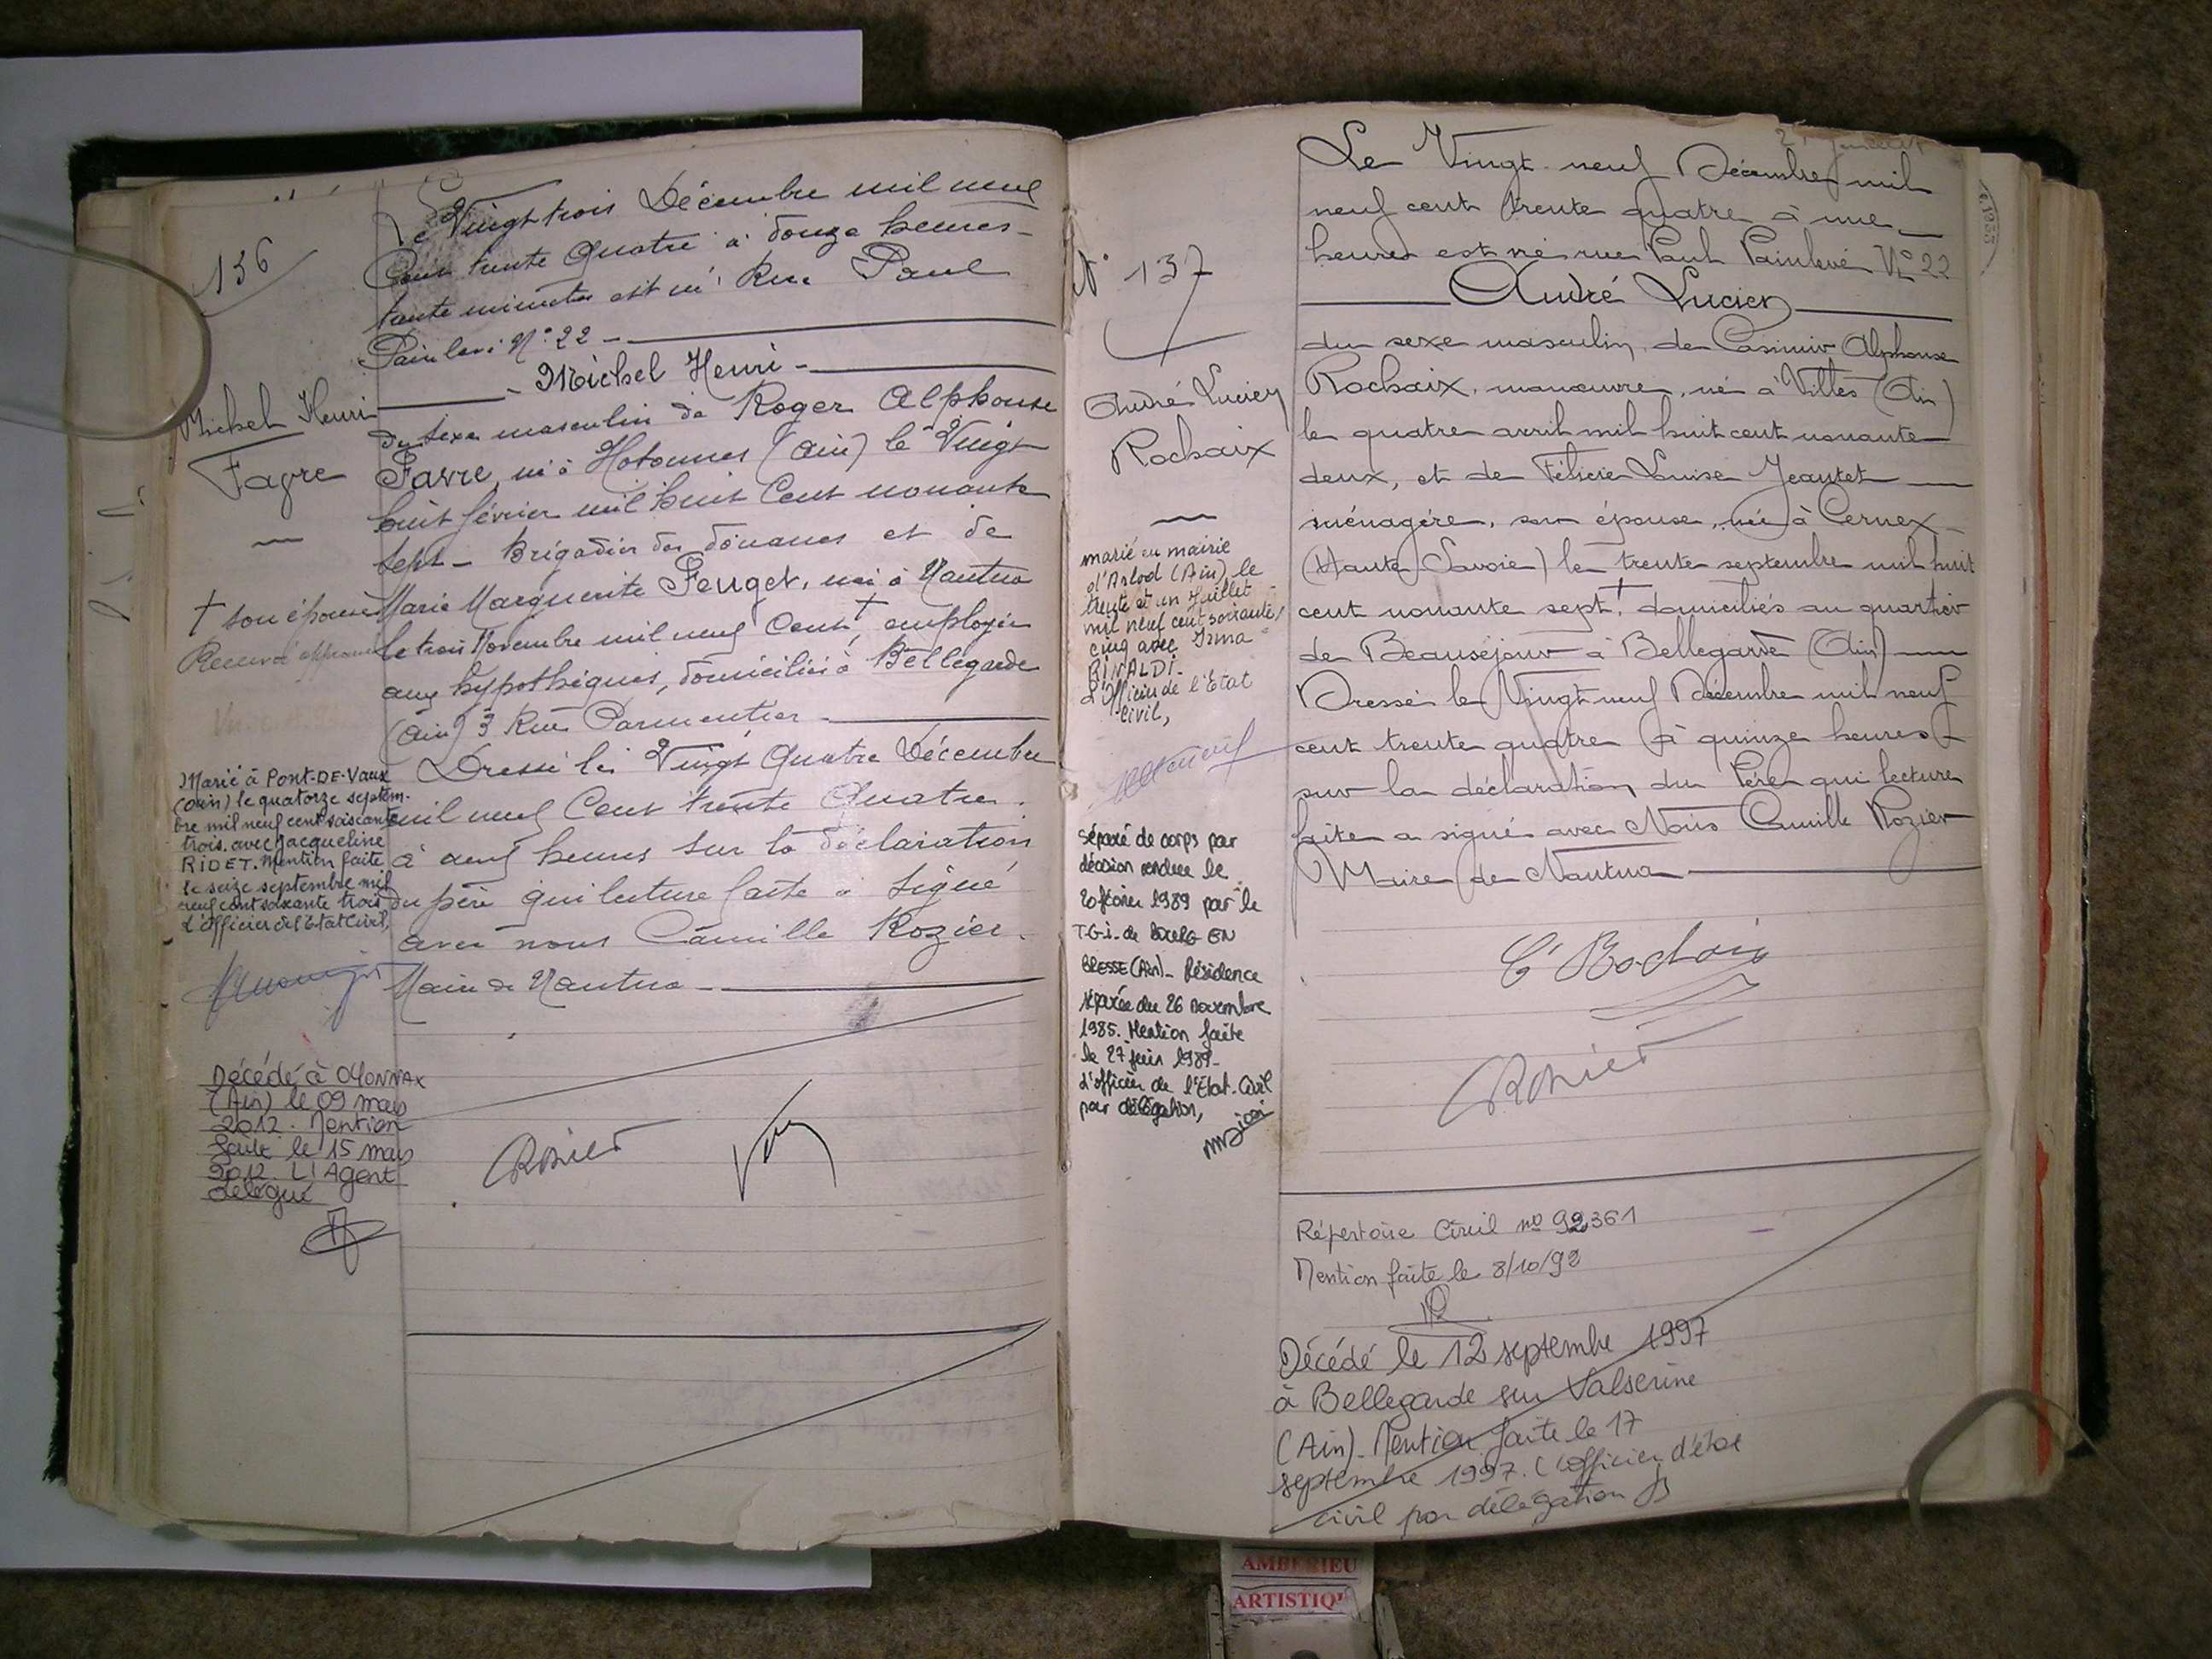 136
Michel Henri
Favre
† son épouse
Marié à PONT-DE-Vaux
(Ain) le quatorze septem-
bre mil neuf cent soixante
trois. avec Jacqueline
RIDET. Mention faite
le seize septembre mil
neuf cent soixante trois
L'Officier de l'Etat Civil,
Décédé à OYONNAX
(Ain) le 09 mars
2012. Mention
faite le 15 mars
2012. L'Agent
délégué
Le Vingt trois Décembre mil neuf
Cent trente Quatre à douze heures
trente minutes est né Rue Paul
Painlevé N° 22
Michel Henri
du sexe masculin de Roger Alphonse
Favre, né à Hotonnes (Ain) le Vingt
huit février mil huit Cent nonante
sept - Brigadier des douanes et de
Marie Marguerite Feuget, née à Nantua
le trois Novembre mil neuf Cent †, employée
aux hypothèques, domiciliés à Bellegarde
(Ain) 3 Rue Parmentier
Dressé le Vingt Quatre Décembre
mil neuf Cent trente Quatre
à neuf heures sur la déclaration
du père qui lecture faite a signé
avec nous Camille Rozier
Maire de Nantua
Rozier
N° 137
André Lucien
Rochaix
marié en mairie
d'Arlod (Ain) le
trente et un Juillet
mil neuf cent soixante
cinq avec Irma
RINALDI-
L'Officier de l'Etat
Civil,
séparé de corps par
décision rendue le
20 février 1989 par le
T.G.i. de BOURG EN
BRESSE (Ain)- Résidence
séparée du 26 novembre
1985. Mention faite
le 27 juin 1989-
L'officier de l'Etat-Civil
par délégation,
Le Vingt neuf Décembre mil
neuf cent trente quatre à une
heures est né rue Paul Painlevé N° 22
André Lucien
du sexe masculin, de Casimir Alphonse
Rochaix, manœuvre, né à Villes (Ain)
le quatre avril mil huit cent nonante
deux, et de Félicie Louise Jeantet
ménagère, son épouse, née à Cernex
(Haute Savoie) le trente septembre mil huit
cent nonante sept, domiciliés au quartier
de Beauséjour à Bellegarde (Ain)
Dressé le Vingt neuf Décembre mil neuf
cent trente quatre à quinze heures
sur la déclaration du Père qui lecture
faite a signé avec Nous Camille Rozier
Maire de Nantua
C Rochaix
Rozier
Répertoire Civil no 92361
Mention faite le 8/10/92
Décédé le 12 septembre 1997
à Bellegarde sur Valserine
(Ain)- Mention faite le 17
septembre 1997. L'officier d'état
civil par délégation
AMBERIEU
ARTISTIQ